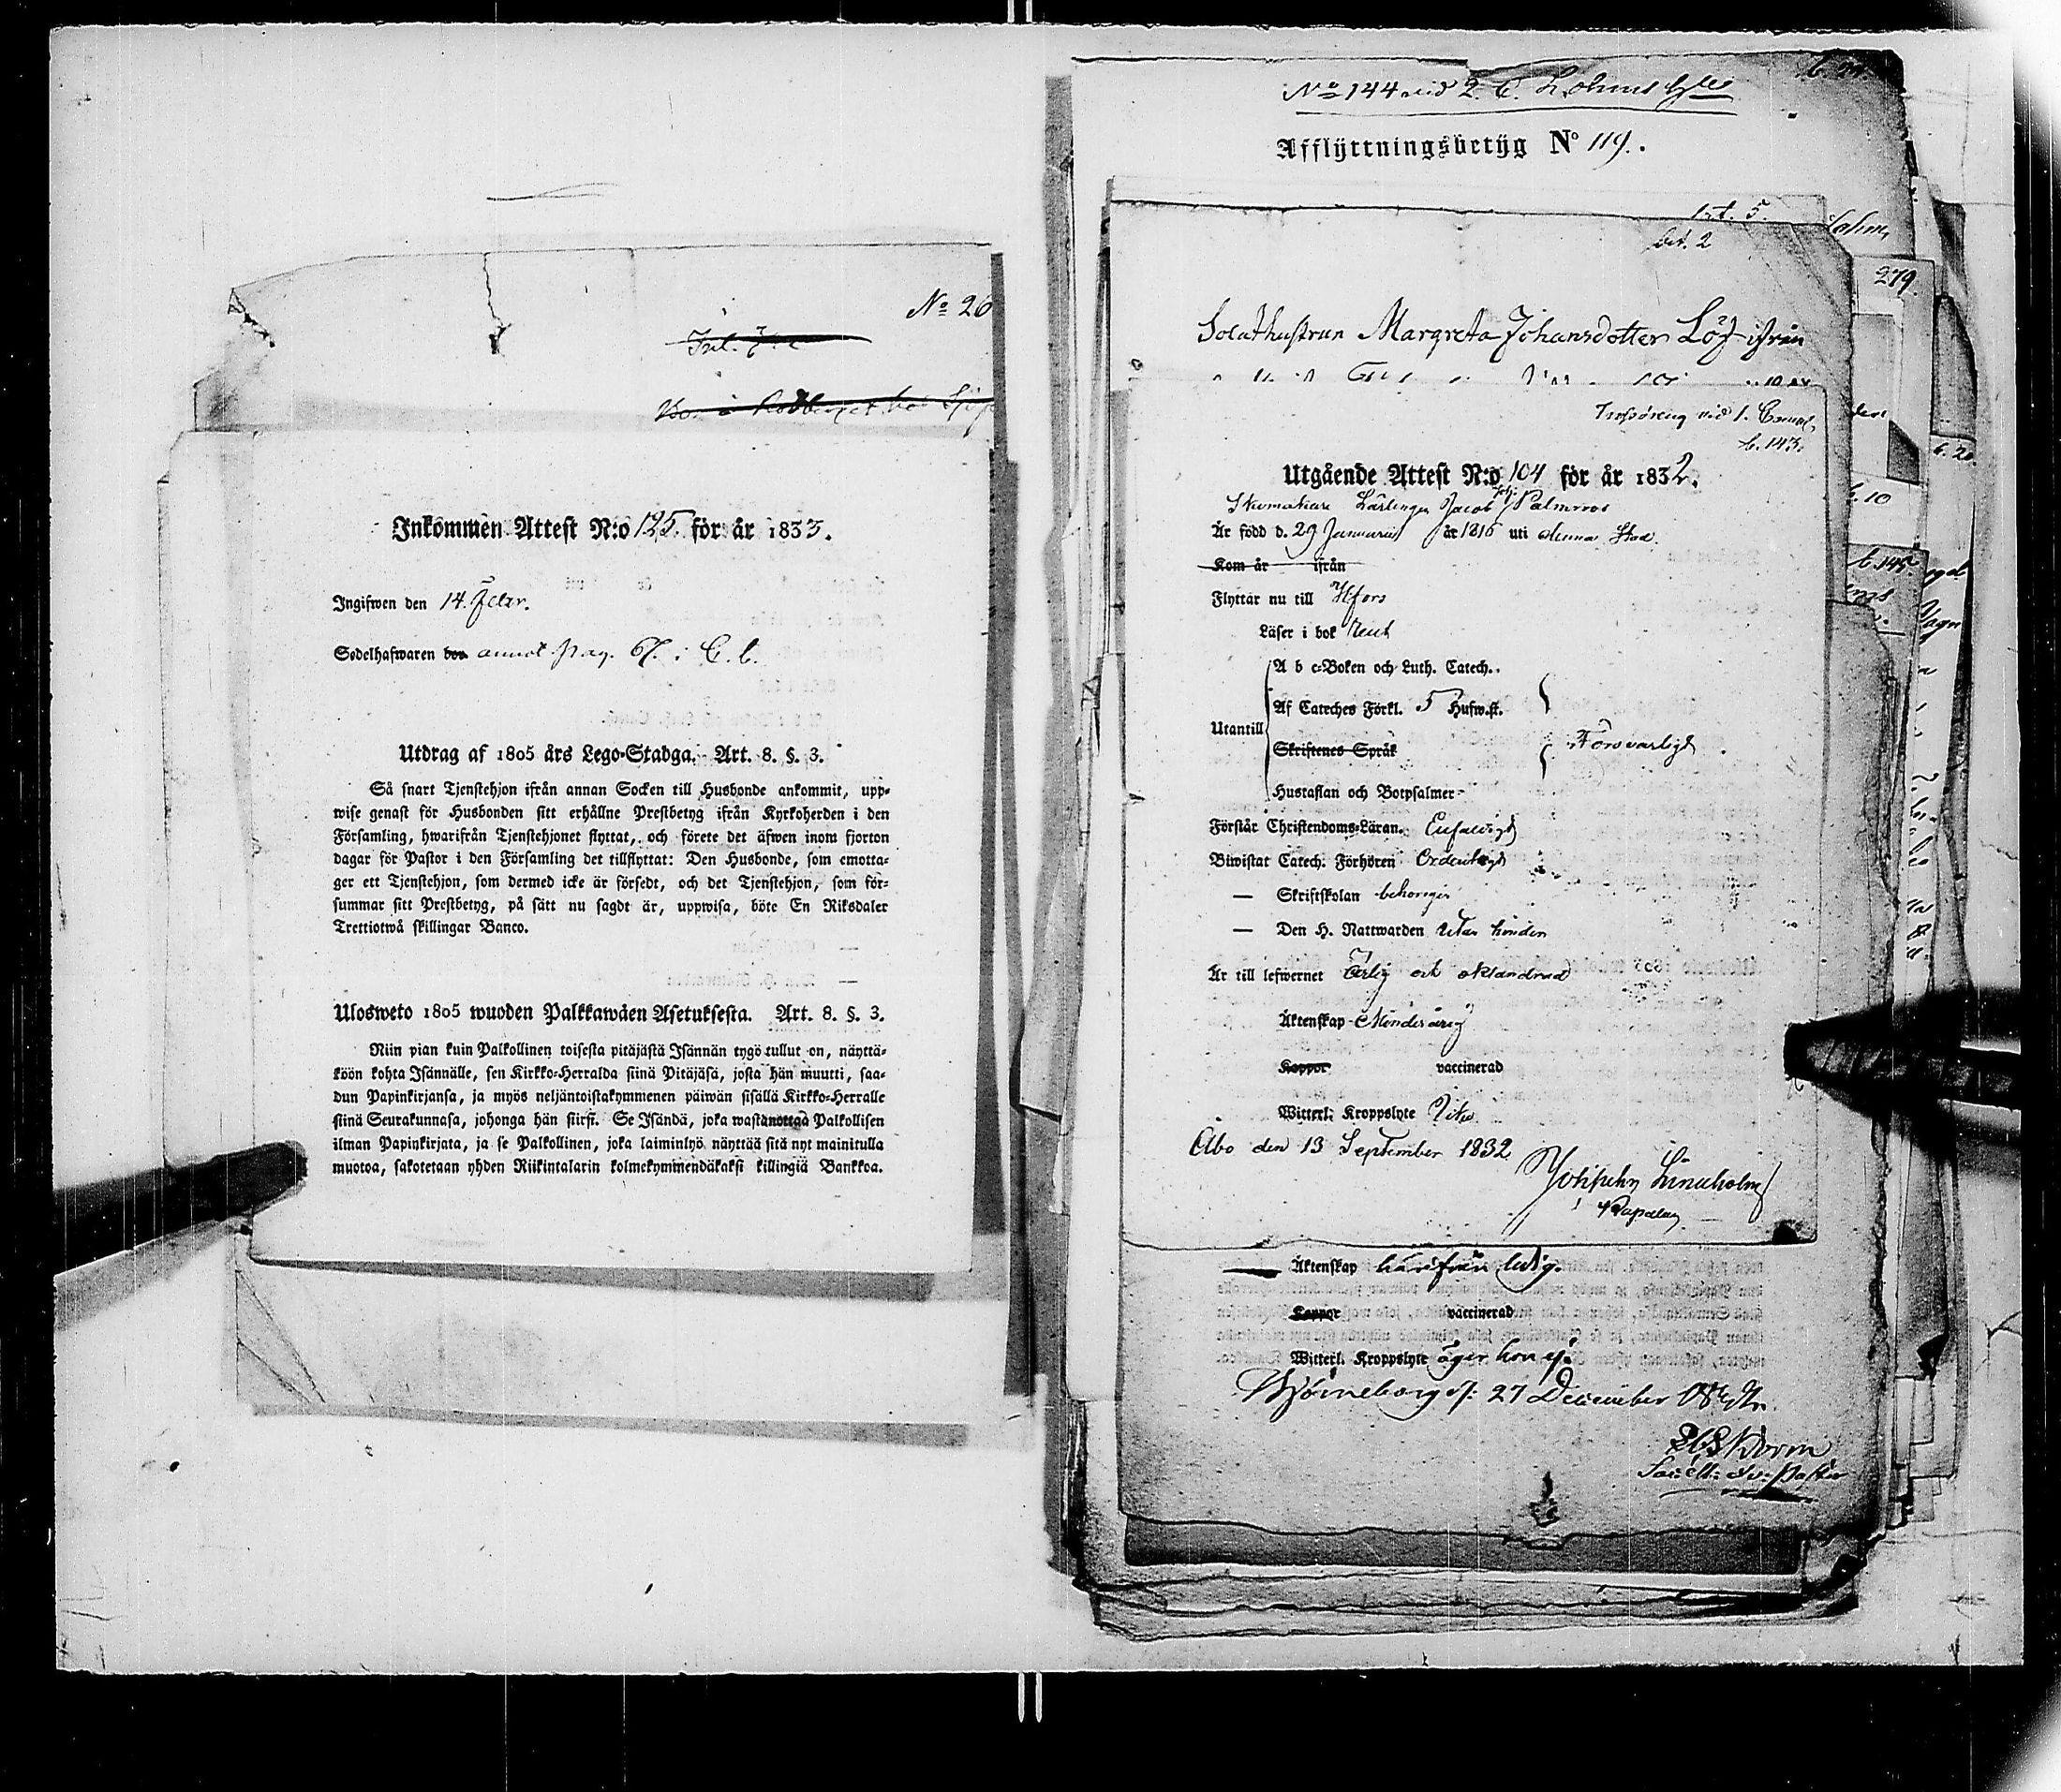 No 20
Inkommen Attest N:o 125. för år 1833.
Ingifwen den 14. Febr.
Sedelhafwaren bor annot pag. 67. i C. b.
Utdrag af 1805 års Lego-Stadga. Art. 8. §. 3.
Så snart Tjenstehjon ifrån annan Socken till Husbonde ankommit, upp-
wise genast för Husbonden sitt erhållne Prestbetyg ifrån Kyrkoherden i den
Församling, hwarifrån Tjenstehjonet flyttat, och förete det äfwen inom fjorton
dagar för Pastor i den Församling det tillflyttat: Den Husbonde, som emotta-
ger ett Tjenstehjon, som dermed icke är försedt, och det Tjenstehjon, som för-
summar sitt Prestbetyg, på sätt nu sagdt är, uppwisa, böte En Riksdaler
Trettiotwå skillingar Banco.
Ulosweto 1805 wuoden Palkkawäen Asetuksesta. Art. 8. §. 3.
Niin pian kuin Palkollinen toisesta pitäjästä Isännän tygö tullut on, näyttä-
köön kohta Isännälle, sen Kirkko-Herralda siinä Pitäjäsä, josta hän muutti, saa-
dun Papinkirjansa, ja myös neljäntoistakymmenen päiwän sisällä Kirkko-Herralle
siinä Seurakunnasa, johonga hän siirsi. Se Isändä, joka wastanottaa Palkollisen
ilman Papinkirjata, ja se Palkollinen, joka laiminlyö näyttää sitä nyt mainitulla
muotoa, sakotetaan yhden Riikintalarin kolmekymmendäkaksi killingiä Bankkoa.
No 144 vid
Afflyttningsbetyg No 119.
bet. 2
279.
Soldthustrun Margreta Johansdotter Löf ifrån
vid 1.
b. 143.
Utgående Attest N:o 104 för år 1832.
Skomakare Lärlingen Jacob Palmroos
Är född d. 29 Januarii år 1816 uti denna Stad.
Kom år ifrån
Flyttar nu till Hfors
Läser i bok rent
Utantill
A b c-Boken och Luth. Catech.
Af Cateches Förkl. 5 Hufw.st.
Skriftenes Språk
Försvarligt
Hustaflan och Botpsalmer
Förstår Christendoms-Läran Enfaldigt
Biwistat Catech. Förhören Ordentligt
— Skriftskolan behörigen
— Den H. Nattwarden utan hinder
Är till lefwernet Ärlig och oklandrad
Äktenskap Minderårig
Koppor vaccinerad
Witterl. Kroppslyte Utan
Åbo den 13 September 1832
Äktenskap härifrån ledig.
Koppor vaccinerad
Witterl. Kroppslyte äger hon ej.
Björneborg d. 27 December